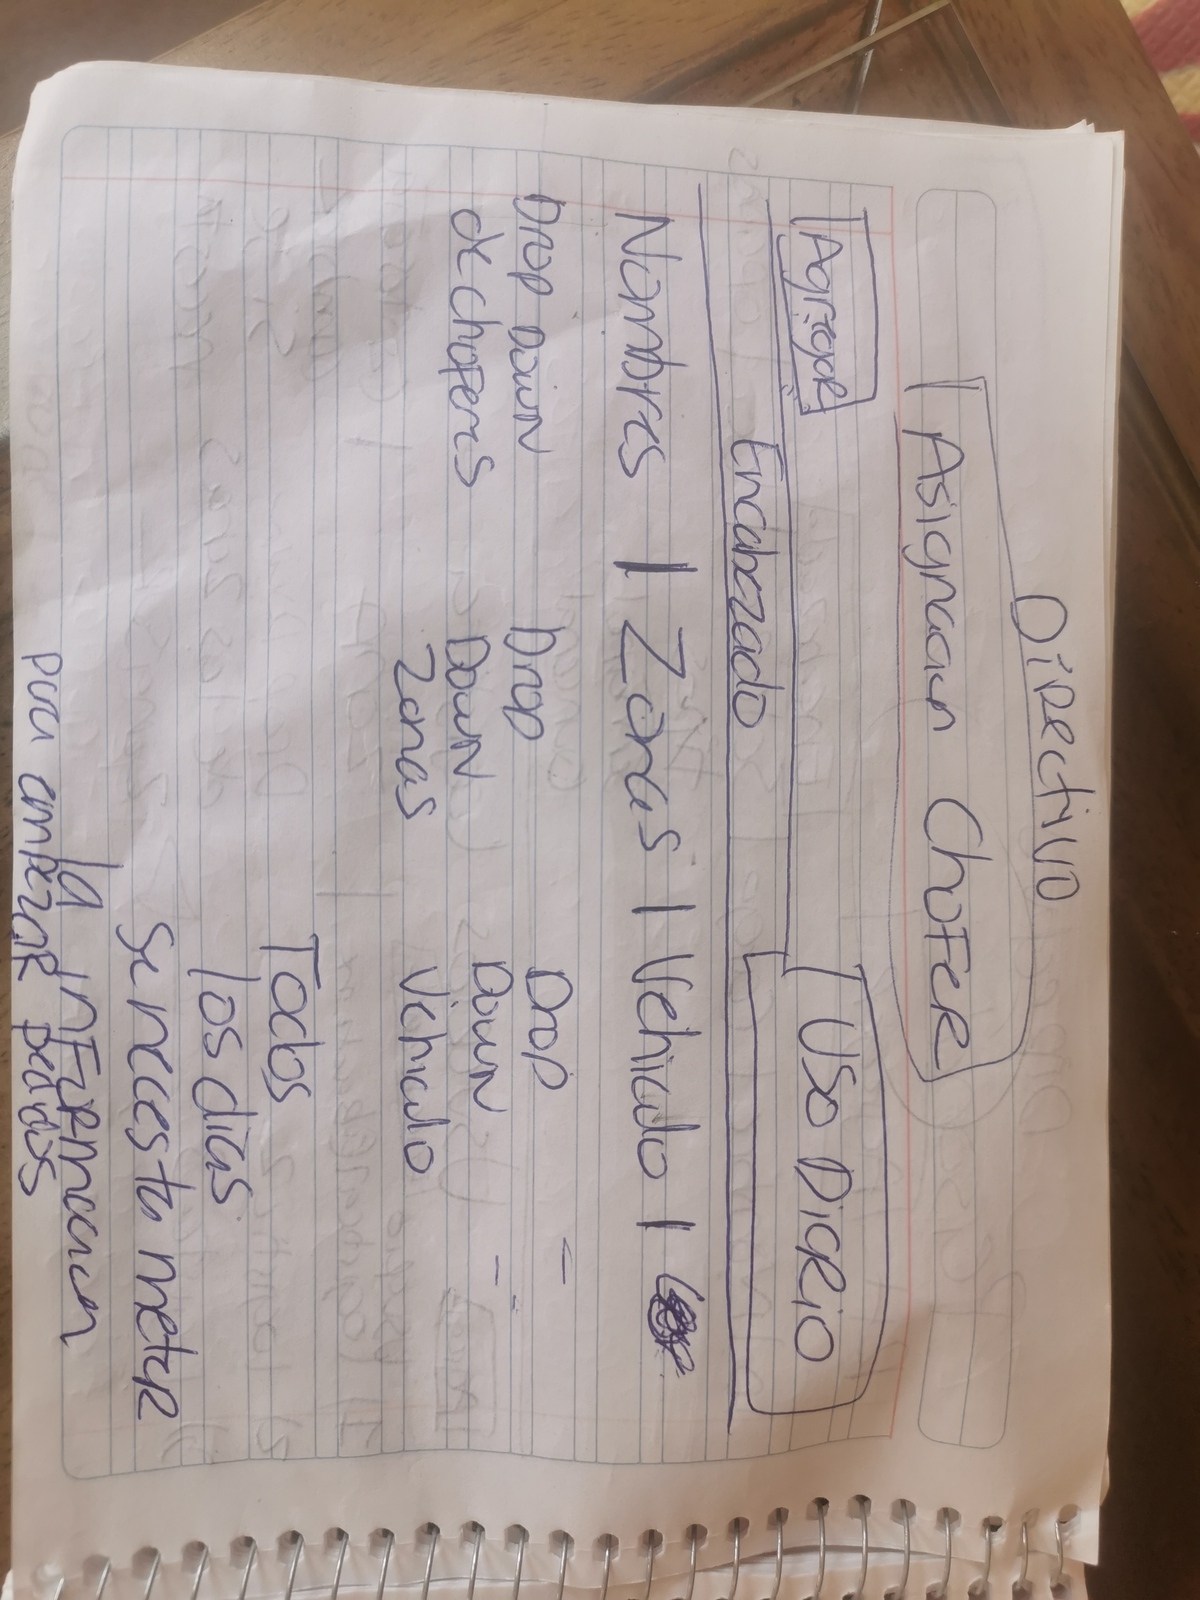 Directivo
Asignacion Chofer
Agregar
Uso Diario
Encabezado
Nombres | Zonas | Vehiculo |
Drop Down de choferes
Drop Down Zonas
Drop Down Vehiculo
Todos
los dias
se necesta meter
la informacion
para empezar pedidos